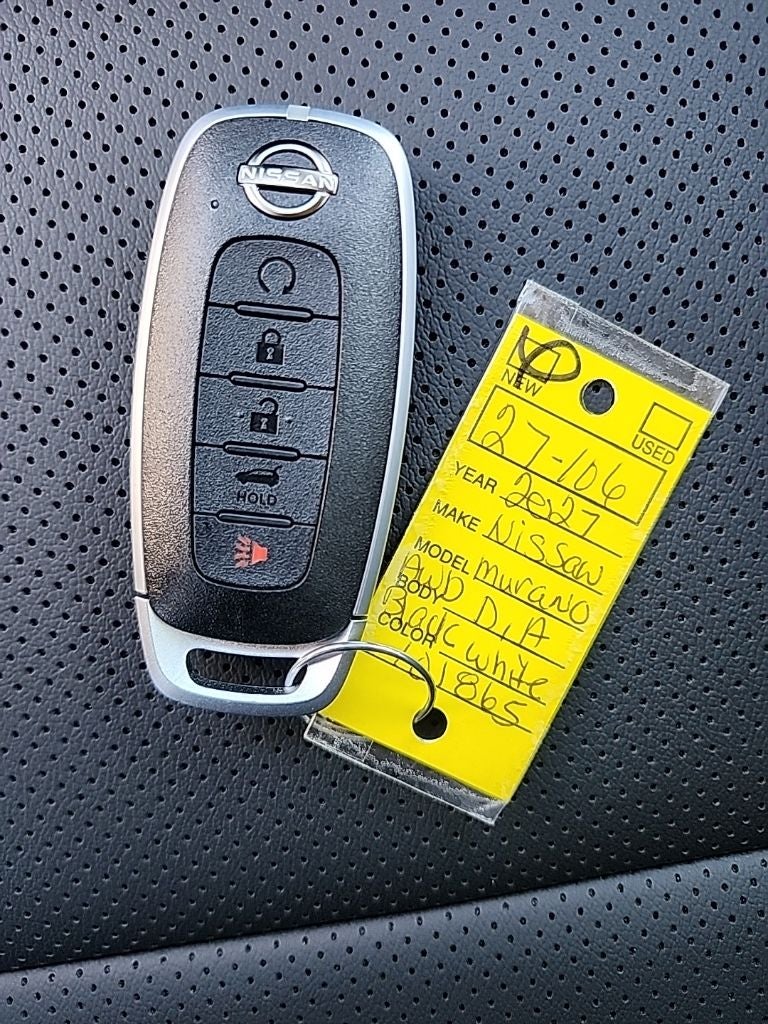 NISSAN
HOLD
NEW
USED
27-106
YEAR 2027
MAKE Nissan
MODEL murano
BODY AWD D,A
COLOR white
101865